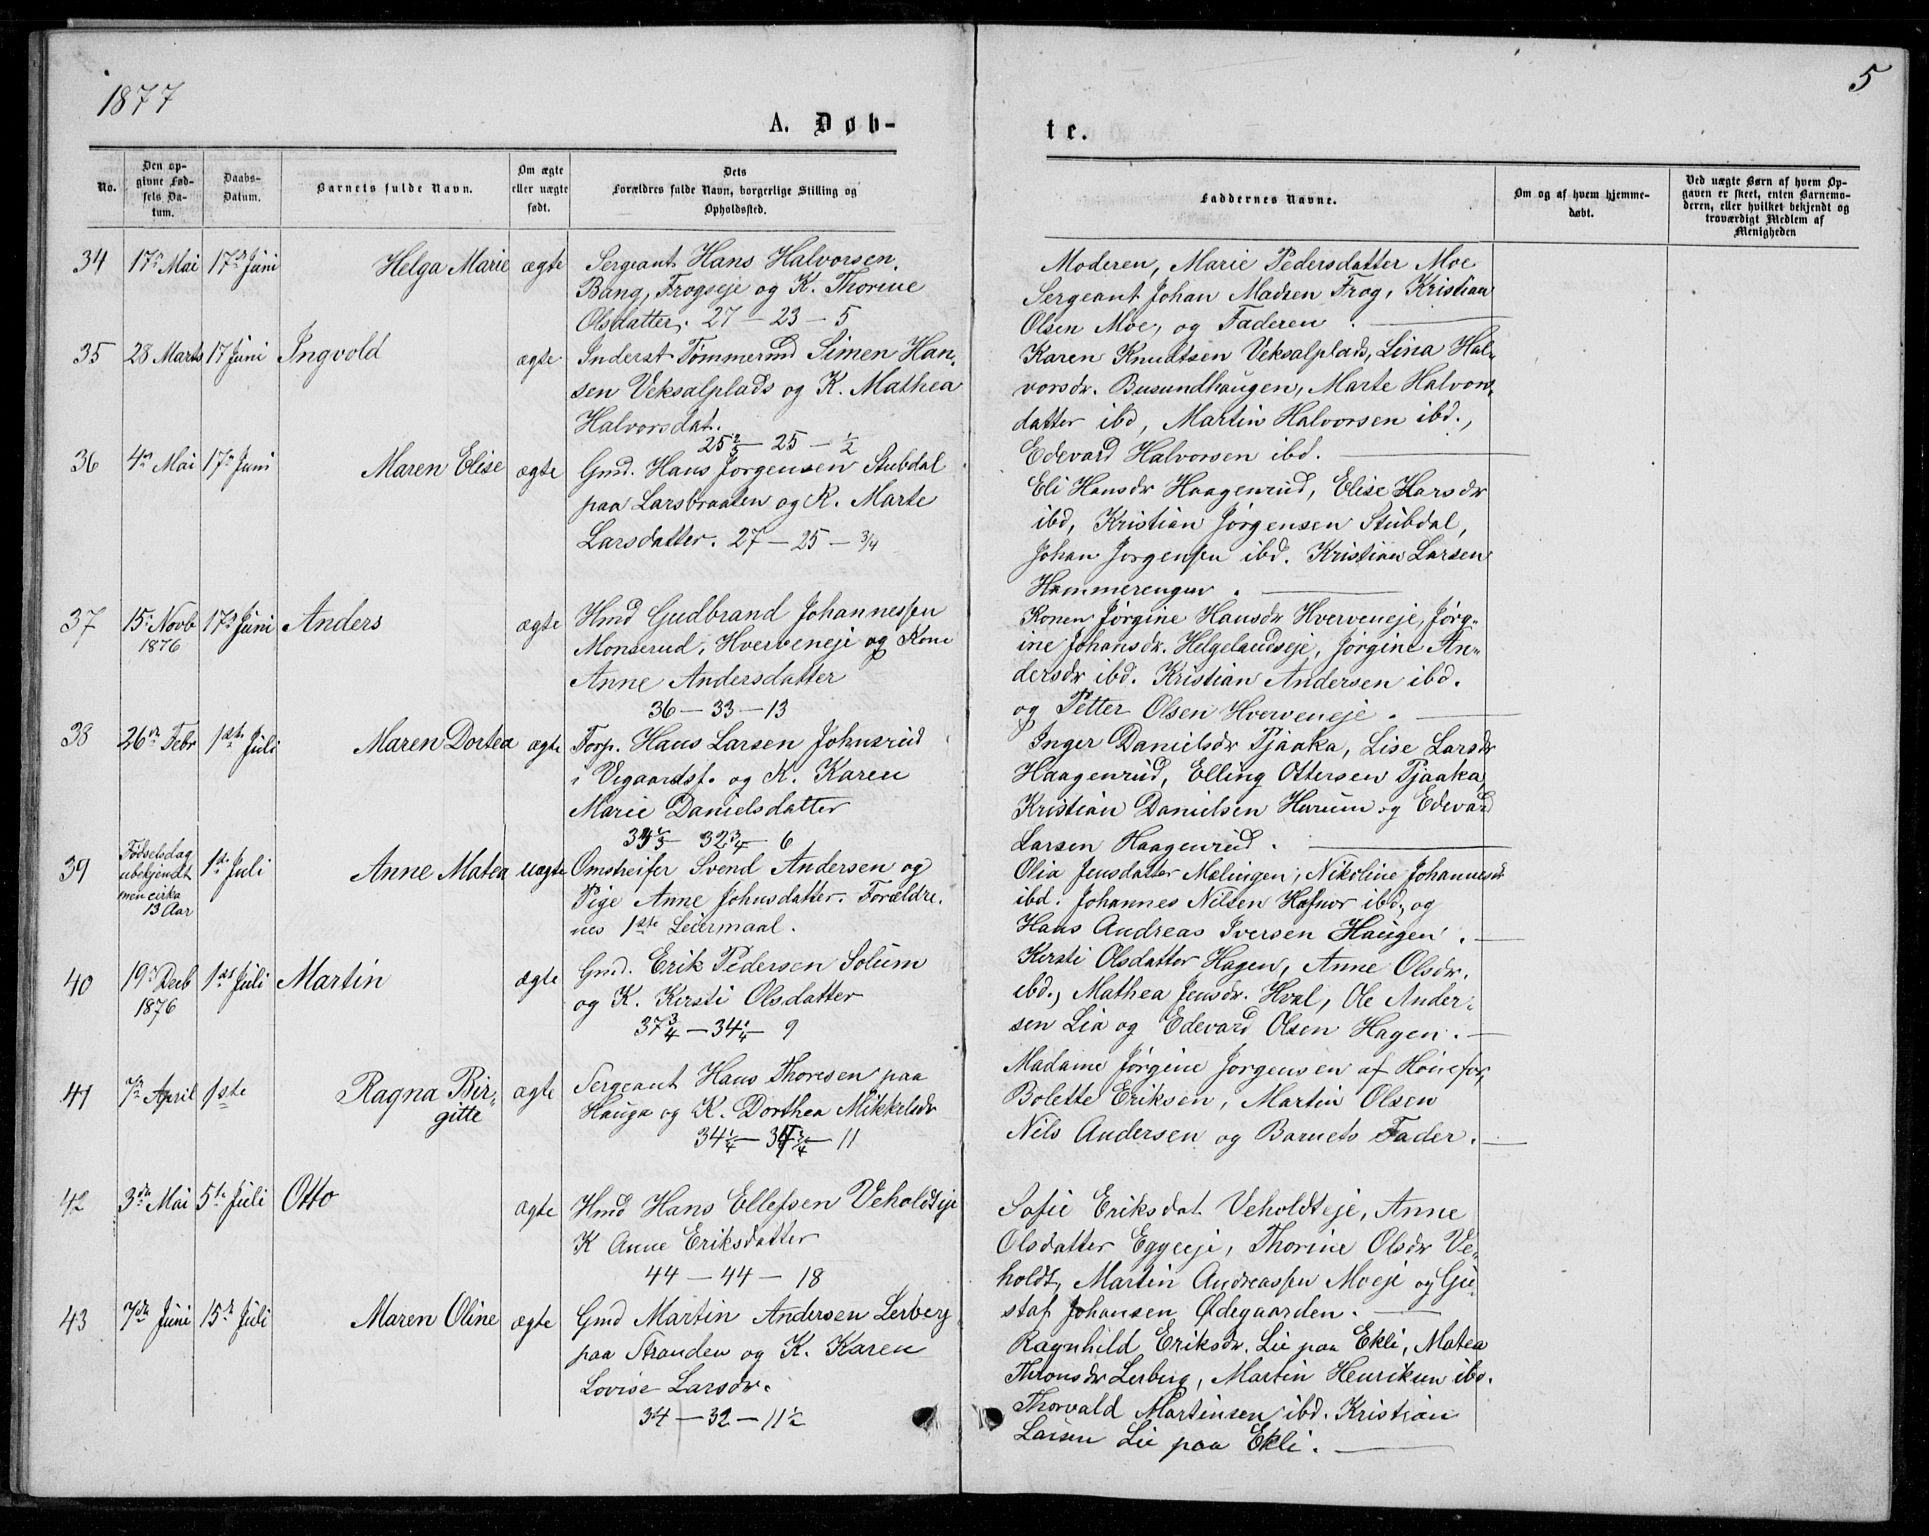 1877
5
A. Døb-
te.
No.
Den op-
givne Fød-
sels Da-
tum.
Daabs-
Datum.
Barnets fulde Navn.
Om ægte
eller uægte
født.
Dets
Forældres fulde Navn, borgerlige Stilling og
Opholdssted.
Faddernes Navne.
Om og af hvem hjemme-
døbt.
Ved uægte Børn af hvem Op-
gaven er skeet, enten Barnemo-
deren, eller hvilket bekjendt og
troværdigt Medlem af
Menigheden
34 17de Mai 17de Juni Helga Marie ægte Sergeant Hans Halvorsen
Bang, Frogseje og K. Thorine
Olsdatter. 27 – 23 – 5
Moderen, Marie Pedersdatter Moe
Sergeant Johan Madsen Frog, Kristian
Olsen Moe, og Faderen.
35 28 Marts 17 Juni Ingvold ægte Inderst Tømmermd Simen Han-
sen Veksalplads og K. Mathea
Halvorsdat.
25 2/3 – 25 – 1/2
Karen Knudtsen Veksalplads, Lina Hal-
vorsdr. Busundhaugen, Marte Halvors-
datter ibd, Martin Halvorsen ibd.,
Edevard Halvorsen ibd.
36 4de Mai 17de Juni Maren Elise ægte Gmd. Hans Jørgensen Stubdal
paa Larsbraaten og K. Marte
Larsdatter. 27 – 25 – 3/4
Eli Hansdr Haagenrud, Elise Larsdr
ibd, Kristian Jørgensen Stubdal,
Johan Jørgensen ibd. Kristian Larsen
Hammerengen.
37 15de Novb 17de Juni Anders ægte Hmd Gudbrand Johannessen
1876
Monserud, Hverveneje og Kone
Anne Andersdatter
36 – 33 – 13
Konen Jørgine Hansdr Hverveneje, Jørg-
ine Johansdr. Helgelandseje, Jørgine An-
dersdr ibd. Kristian Andersen ibd.
og Petter Olsen Hverveneje.
38 26de Febr 1ste Juli Maren Dortea ægte Forp. Hans Larsen Johnsrud
i Vegaardsf. og K. Karen
Marie Danielsdatter
32 3/4 – 6
Inger Danielsdr Tjaaka, Lise Larsdr
Haagenrud, Elling Ottersen Tjaaka
Kristian Danielsen Hurum og Edevard
Larsen Haagenrud.
39 Fødselsdag
ubekjendt
men cirka
13 Aar
1ste Juli Anne Matea uægte Omstreifer Svend Andersen og
Pige Anne Johnsdatter. Forældre-
nes 1ste Leiermaal.
Olia Jensdatter Mælingen, Nikoline Johannesdr
ibd. Johannes Nilsen Hafnor ibd, og
Hans Andreas Iversen Haugen.
40 19de Decb 1ste Juli Martin ægte Gmd. Erik Pedersen Solum
1876
og K. Kirsti Olsdatter
37 3/4 – 34 1/4 – 9
Kersti Olsdatter Hagen, Anne Olsdr.
ibd., Mathea Jensdr. Hval, Ole Ander-
sen Lia og Edevard Olsen Hagen.
41 7de April 1ste Ragna Bir-
gitte
ægte Sergeant Hans Thoresen paa
Hauga og K. Dorthea Mikkelsdr
Madame Jørgine Jørgensen af Hønefos,
Bolette Eriksen, Martin Olsen
Nils Andersen og Barnets Fader.
42 3die Mai 5te Juli Otto ægte Hmd Hans Ellefsen Veholdteje
K Anne Eriksdatter
44 – 44 – 18
Sofie Eriksdat Veholdteje, Anne
Olsdatter Eggeeje, Thorine Olsdr Ve-
holdt, Martin Andreassen Moeje og Gu-
staf Johansen Ødegaarden.
43 7de Juni 15de Juli Maren Oline ægte Gmd Martin Andersen Lerberg
paa Stranden og K. Karen
Lovise Larsdr.
34 – 32 – 11 1/2
Ragnhild Eriksdr. Lie paa Ekli, Matea
Lerberg, Martin Henriksen ibd.
Thorvald Martinsen ibd. Kristian
Larsen Lie paa Ekli.